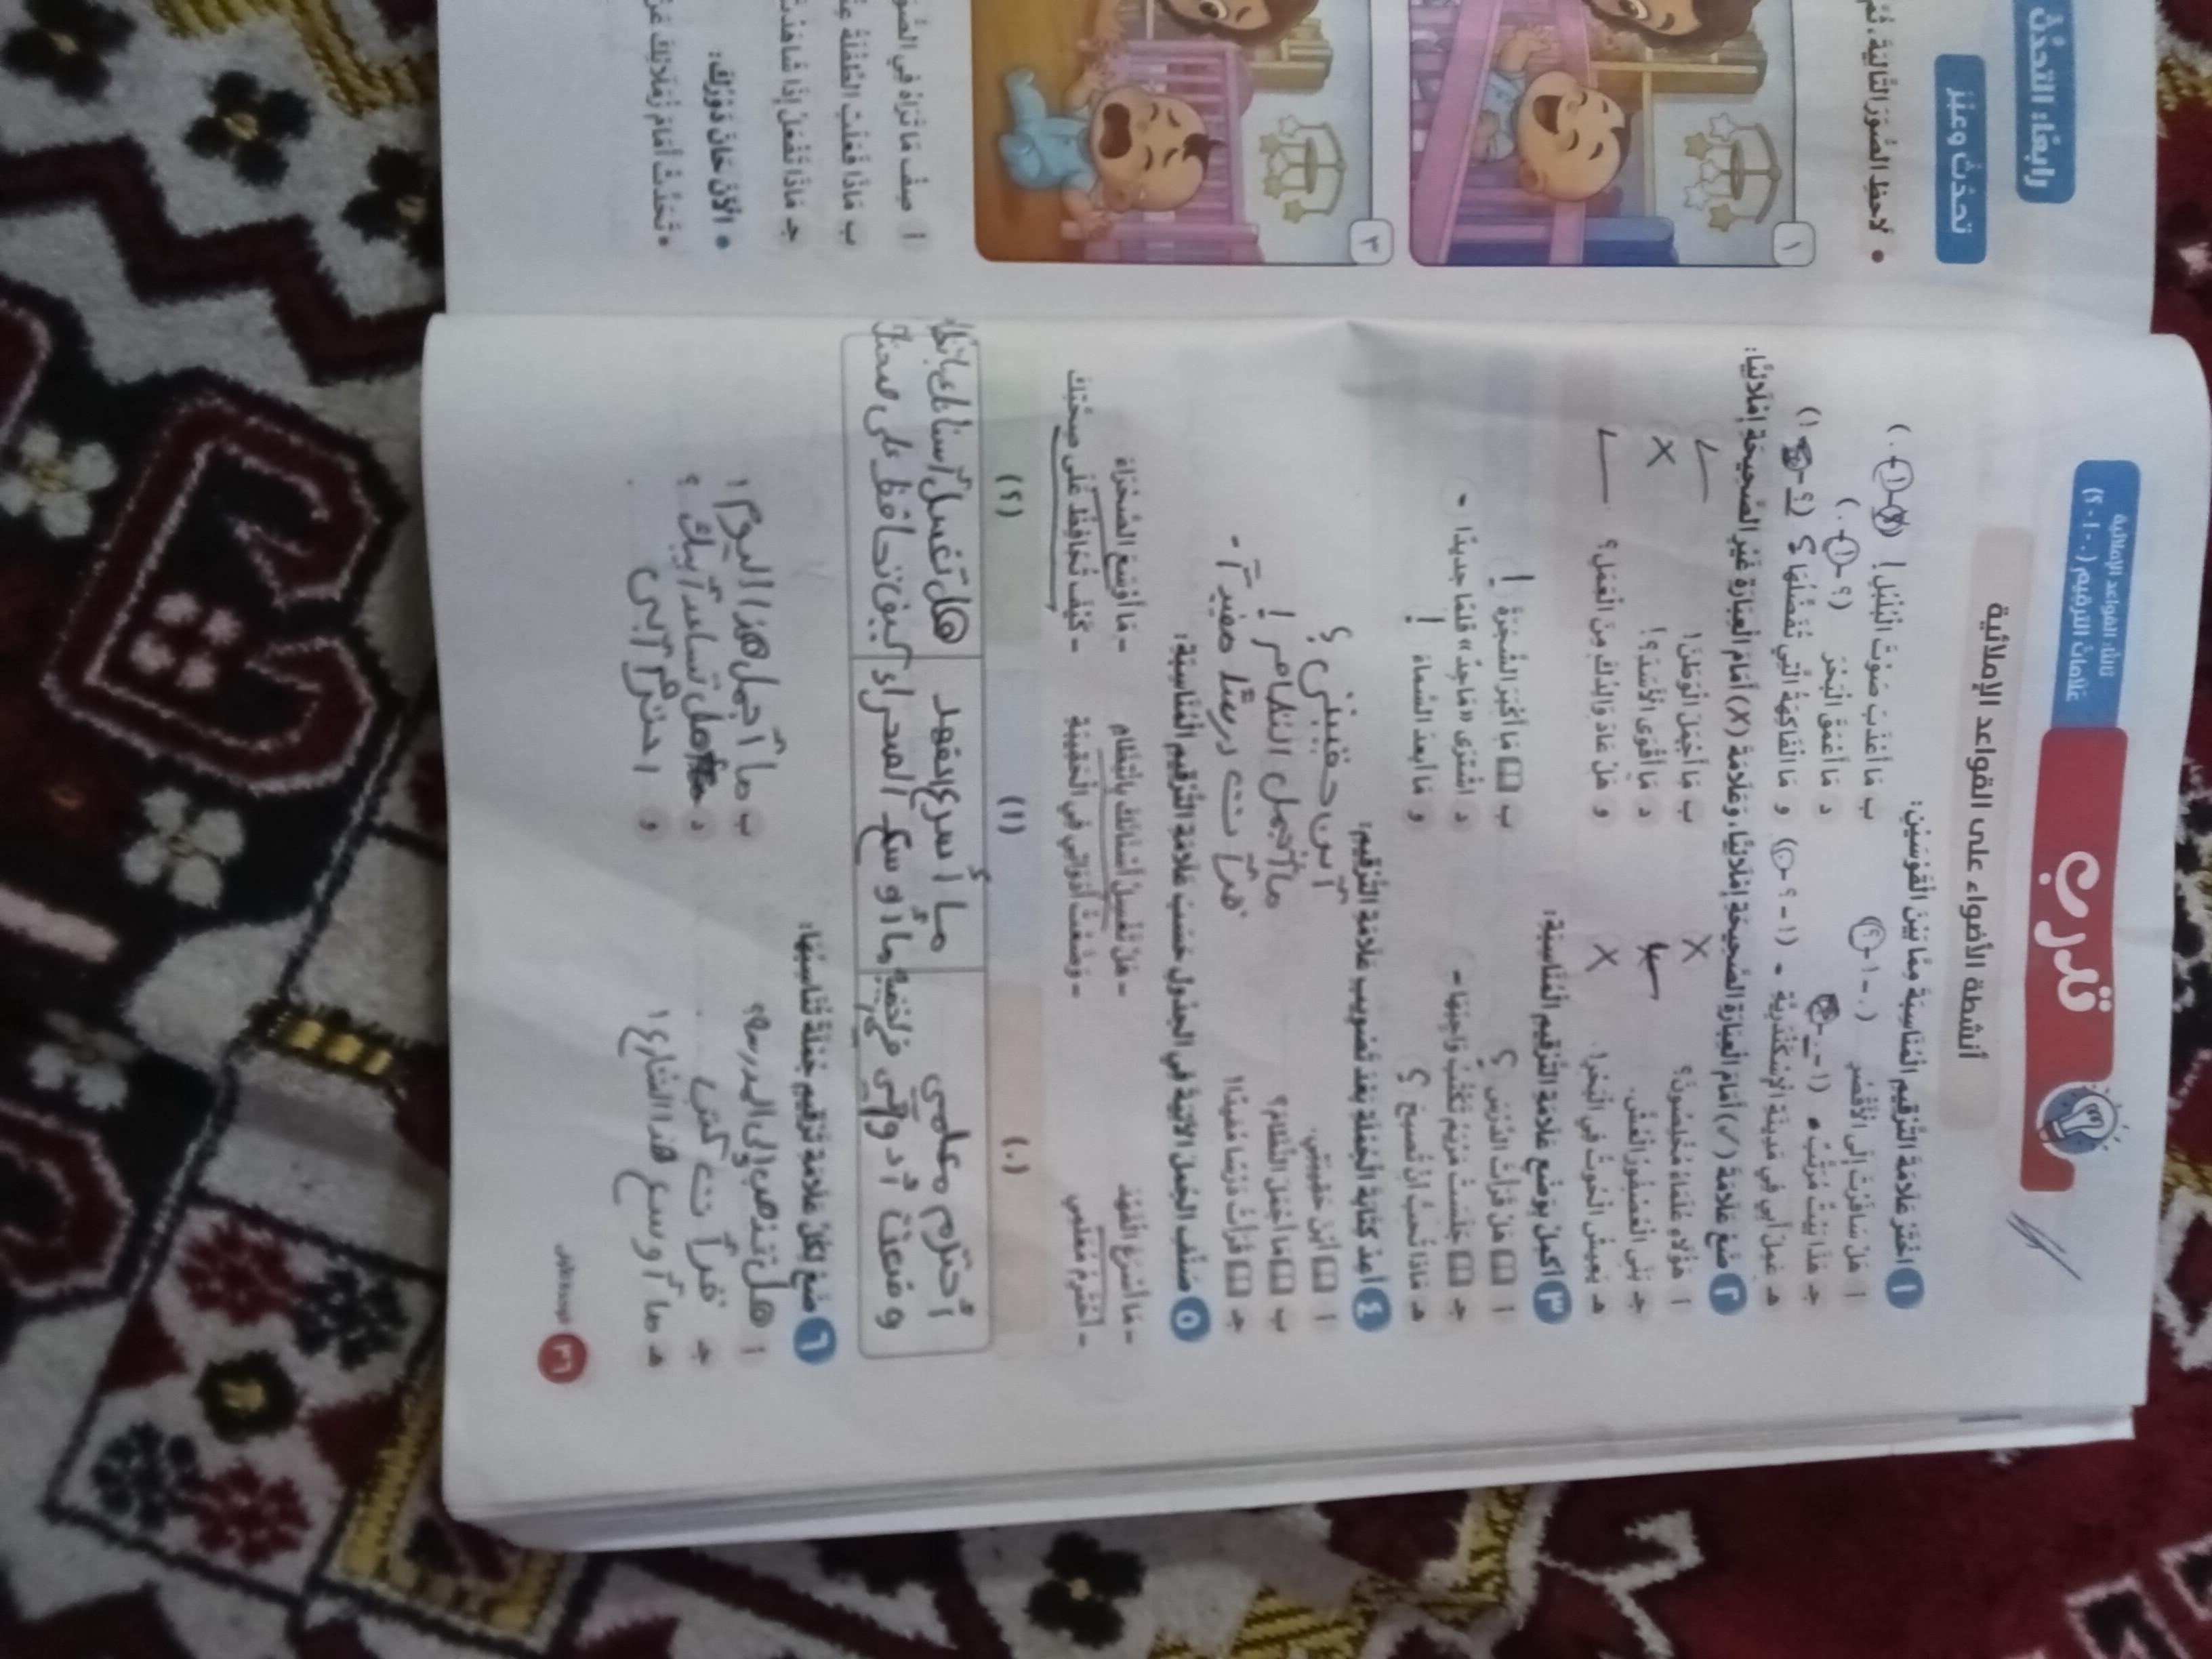 ثالثًا: القواعد الإملائية
علامات الترقيم (. - ! - ؟)
تدرب
أنشطة الأضواء على القواعد الإملائية
١ اخْتَرْ عَلَامَةَ التَّرْقِيمِ الْمُنَاسِبَةَ مِمَّا بَيْنَ الْقَوْسَيْنِ:
أ هَلْ سَافَرْتَ إِلَى الْأُقْصُرِ (؟ - ! - .)
ب مَا أَعْذَبَ صَوْتَ الْبُلْبُلِ ! (؟ - ! - .)
جـ هَذَا بَيْتٌ مُرَتَّبٌ
د مَا أَعْمَقَ الْبَحْرَ (؟ - ! - .)
هـ عَمِلَ أَبِي فِي مَدِينَةِ الْإِسْكَنْدَرِيَّةِ (! - ؟ - .)
و مَا الْفَاكِهَةُ الَّتِي تُفَضِّلُهَا ؟
٢ ضَعْ عَلَامَةَ (✓) أَمَامَ الْعِبَارَةِ الصَّحِيحَةِ إِمْلَائِيًّا، وَعَلَامَةَ (X) أَمَامَ الْعِبَارَةِ غَيْرِ الصَّحِيحَةِ إِمْلَائِيًّا:
أ هَؤُلَاءِ عُلَمَاءُ مُخْلِصُونَ؟ X
ب مَا أَجْمَلَ الْوَطَنَ! ✓
جـ بَنَى الْعُصْفُورُ الْعُشَّ.
د مَا أَقْوَى الْأَسَدَ؟! X
هـ يَعِيشُ الْحُوتُ فِي الْبَحْرِ! X
و هَلْ عَادَ وَالِدُكَ مِنَ الْعَمَلِ؟ ✓
٣ أَكْمِلْ بِوَضْعِ عَلَامَةِ التَّرْقِيمِ الْمُنَاسِبَةِ:
أ هَلْ قَرَأْتَ الدَّرْسَ ؟
ب مَا أَكْبَرَ الشَّجَرَةَ !
جـ جَلَسَتْ مَرْيَمُ تَكْتُبُ وَاجِبَهَا -
د اشْتَرَى «مَاجِدٌ» قَلَمًا جَدِيدًا -
هـ مَاذَا تُحِبُّ أَنْ تُصْبِحَ ؟
و مَا أَبْعَدَ السَّمَاءَ !
٤ أَعِدْ كِتَابَةَ الْجُمْلَةِ بَعْدَ تَصْوِيبِ عَلَامَةِ التَّرْقِيمِ:
أ أَيْنَ حَقِيبَتِي. أين حقيبتي ؟
ب مَا أَجْمَلَ النِّظَامَ؟ ما أجمل النظام !
جـ قَرَأْتُ دَرْسًا مُفِيدًا! قرأت درسًا مفيدًا -
٥ صَنِّفِ الْجُمَلَ الْآتِيَةَ فِي الْجَدْوَلِ حَسَبَ عَلَامَةِ التَّرْقِيمِ الْمُنَاسِبَةِ:
- مَا أَسْرَعَ الْفَهْدَ - هَلْ تَغْسِلُ أَسْنَانَكَ بِانْتِظَامٍ - مَا أَوْسَعَ الصَّحْرَاءَ
- أَحْتَرِمُ مُعَلِّمِي - وَضَعْتُ أَدَوَاتِي فِي الْحَقِيبَةِ - كَيْفَ تُحَافِظُ عَلَى صِحَّتِكَ
(.) (!) (؟)
أحترم معلمي ما أسرع الفهد هل تغسل أسنانك
وضعت أدواتي في ما أوسع الصحراء كيف تحافظ على صحتك
٦ ضَعْ لِكُلِّ عَلَامَةِ تَرْقِيمٍ جُمْلَةً تُنَاسِبُهَا:
أ هل تذهب إلى المدرسة ؟
ب ما أجمل هذا اليوم !
جـ قرأت كتب .
د هل تساعد أبيك ؟
هـ ما أوسع هذا الشارع !
و احترم أبي .
٣٦
رابعًا: التحدث
تحدث وعبر
• لَاحِظِ الصُّوَرَ التَّالِيَةَ، ثُمَّ
١
٣
أ صِفْ مَا تَرَاهُ فِي
ب مَاذَا فَعَلَتِ الطِّفْلَةُ
جـ مَاذَا تَفْعَلُ إِذَا شَاهَدْتَ
• الْآنَ حَانَ دَوْرُكَ:
• تَحَدَّثْ أَمَامَ زُمَلَائِكَ عَنْ